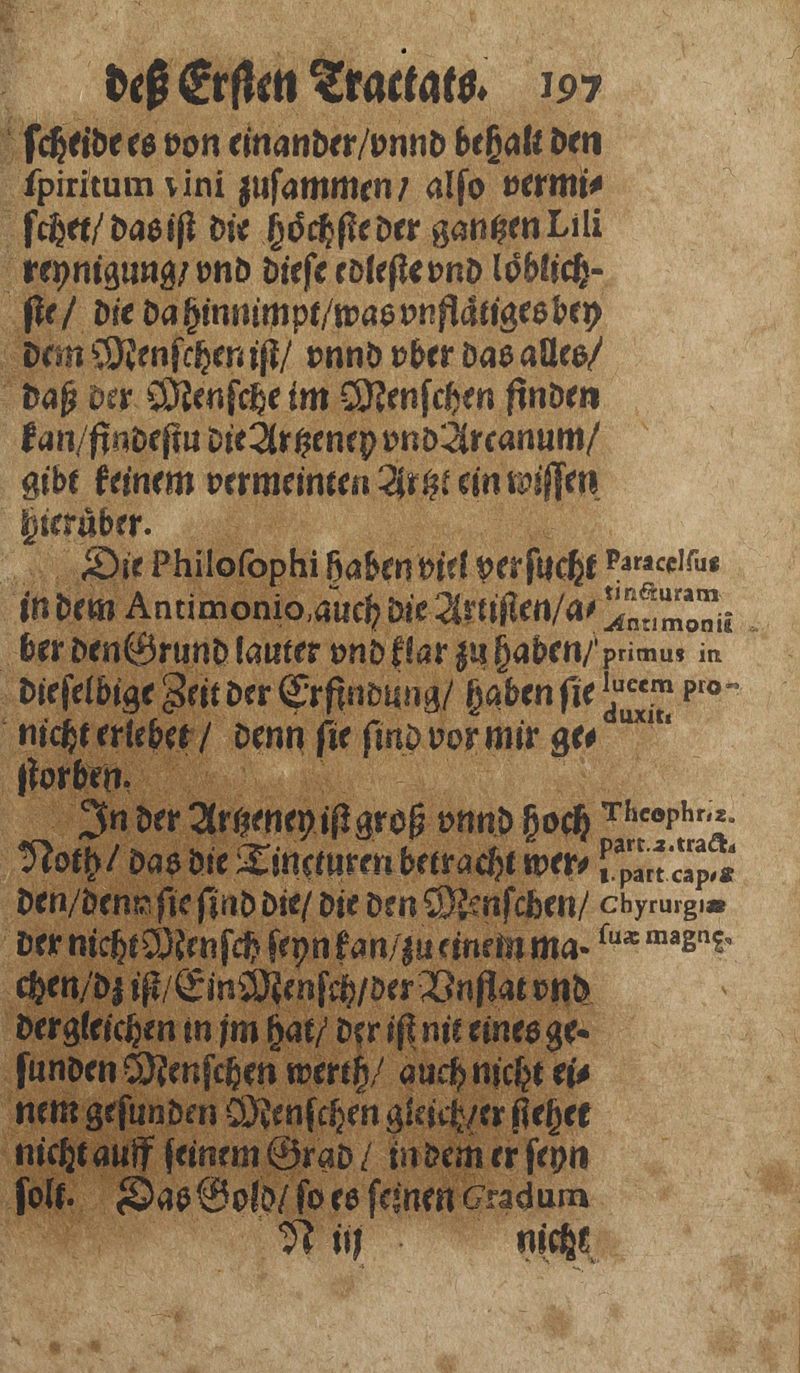 deß Ersten Tractats. 197
scheide es von einander/vnnd behalt den
spiritum vini zusammen/ also vermi-
schet/ das ist die höchste der gantzen Lili
reynigung/ vnd diese edleste vnd löblich-
ste/ die da hinnimpt/was vnflätiges bey
dem Menschen ist/ vnnd vber das alles/
daß der Mensche im Menschen finden
kan/findestu die Artzeney vnd Arcanum/
gibt keinem vermeinten Artzt ein wissen
hierüber.
Die Philosophi haben viel versucht
in dem Antimonio, auch die Artisten/a-
ber den Grund lauter vnd klar zu haben/
dieselbige Zeit der Erfindung/ haben sie
nicht erlebet/ denn sie sind vor mir ge-
storben.
Paracelsus
tincturam
Antimonii
primus in
lucem pro-
duxit.
In der Artzeney ist groß vnnd hoch
Noth/ das die Tincturen betracht wer-
den/denn sie sind die/ die den Menschen/
der nicht Mensch seyn kan/zu einem ma-
chen/dz ist/Ein Mensch/der Vnflat vnd
dergleichen in jm hat/ der ist nit eines ge-
sunden Menschen werth/ auch nicht ei-
nem gesunden Menschen gleich/er stehet
nicht auff seinem Grad/ in dem er seyn
solt. Das Gold/ so es seinen Gradum
Theophr. 2.
part. 2. tract.
1. part. cap. 8
Chyrurgiæ
suæ magnę.
N iij nicht